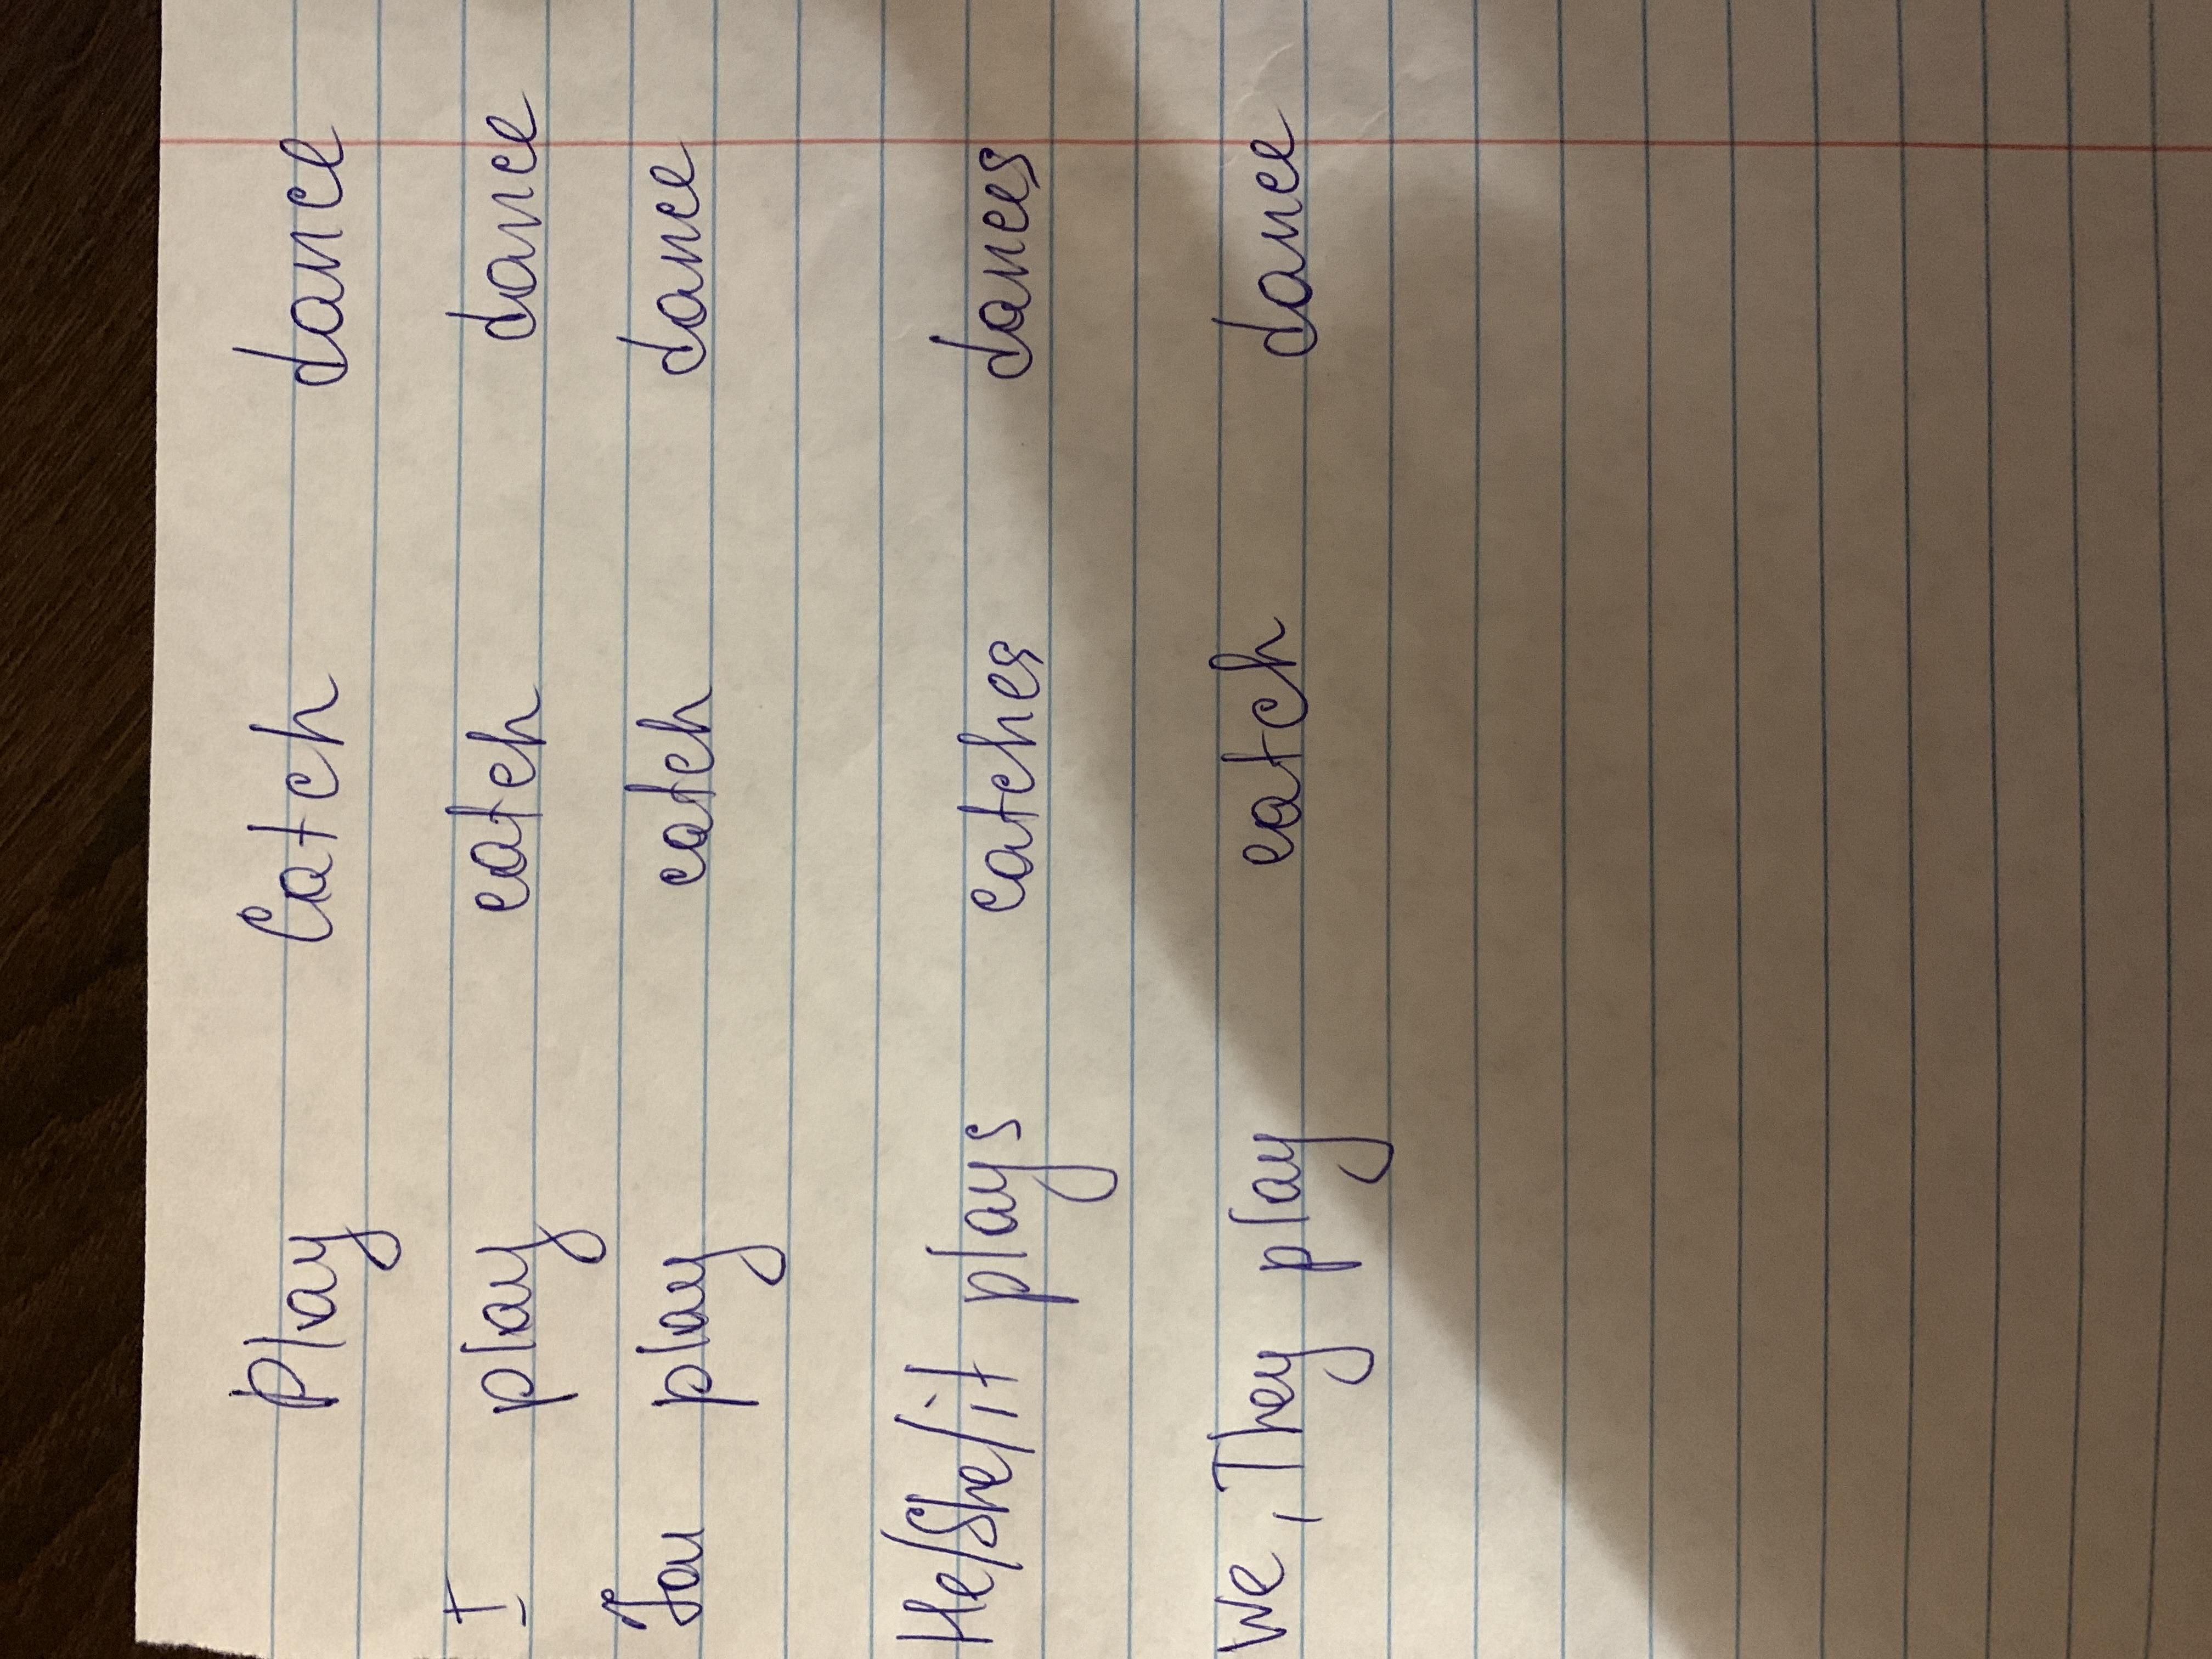 Play Catch dance
I play catch dance
You play catch dance
He/She/it plays catches dances
We, They play catch dance